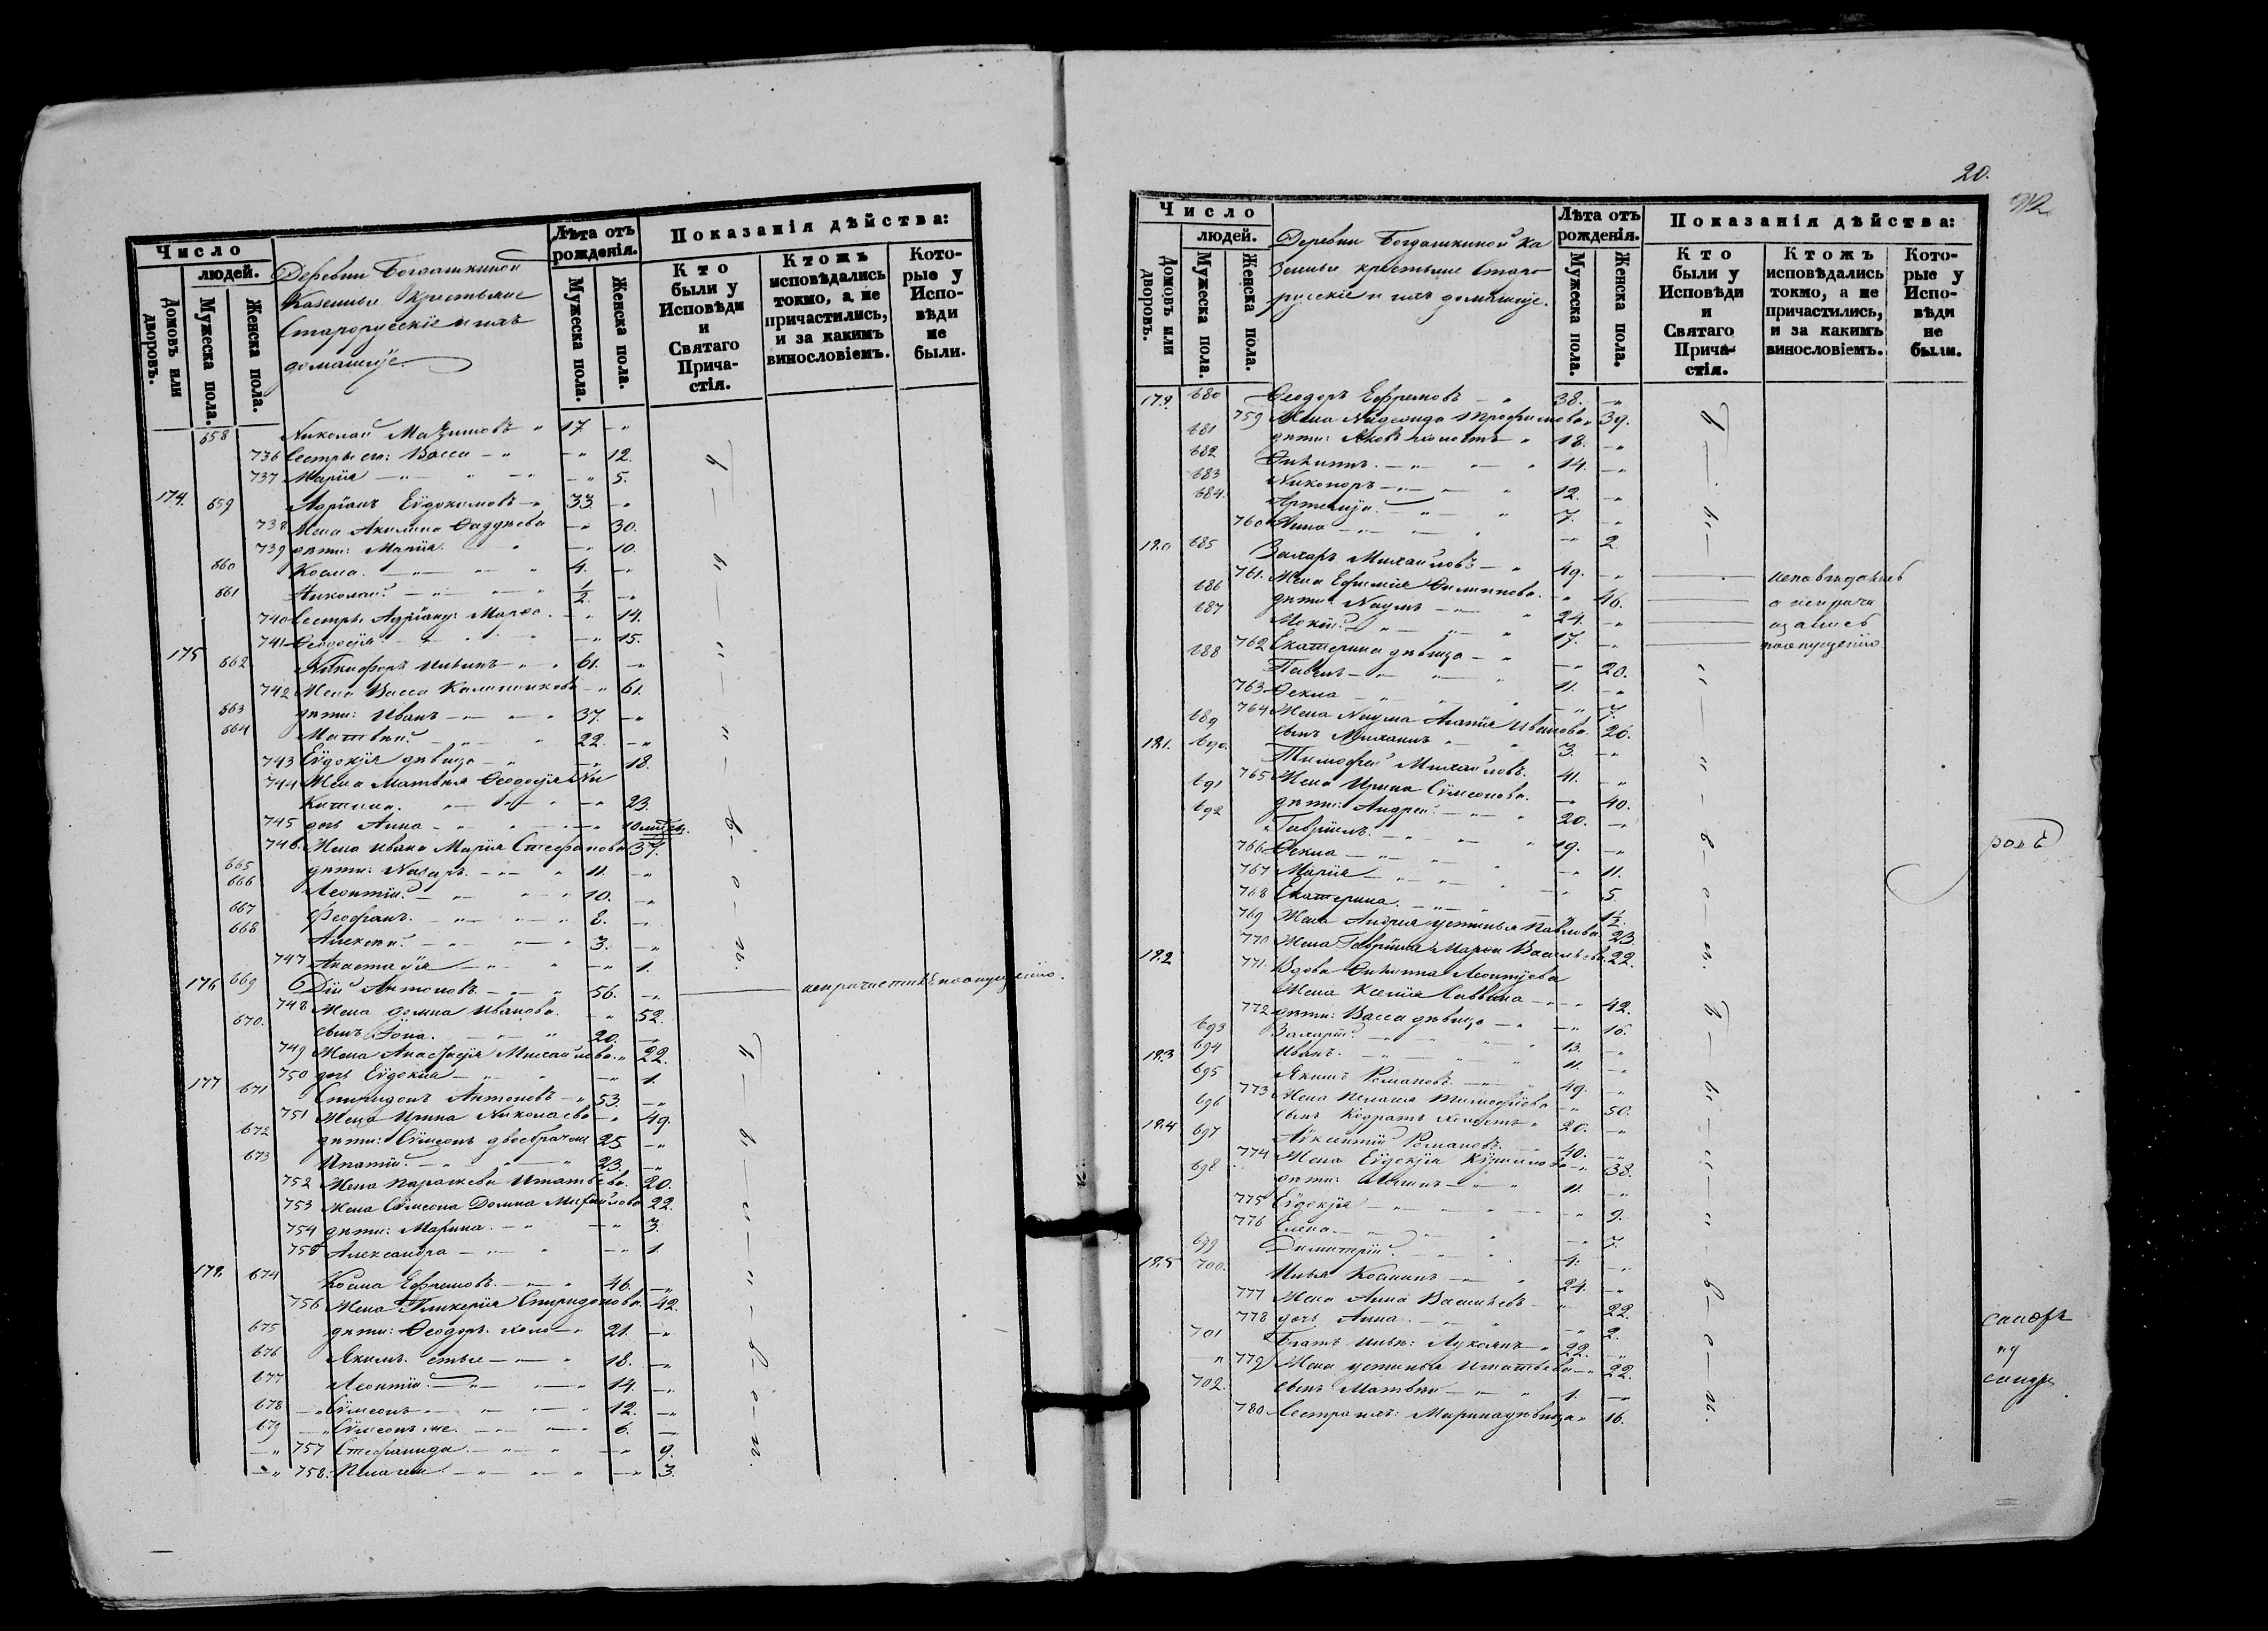 Число
людей.
Домовъ или дворовъ.
Мужеска пола.
Женска пола.
Деревни Богдашкиной
Казенные крестьяне
Старорусскіе и ихъ
домашніе.
Лѣта отъ рожденія.
Мужеска пола.
Женска пола.
Показанія дѣйства:
Кто были у Исповѣди и Святаго Причастія.
Ктожъ исповѣдались токмо, а не причастились, и за какимъ винословіемъ.
Которые у Исповѣди не были.
658 Николай Ма 17. "
736 Сестры его: Васса " 12.
737 Марія " 5.
174. 659 Адріанъ Еѵдокимовъ 33. "
738 Жена Акилина Фаддѣева " 30.
739 дѣти: Марія " 10.
660 Косма. 4. "
661 Николай 1/2 "
740 Сестры Адріану: Марѳа " 14.
741 Ѳеодосія " 15.
175 662 Никифоръ 61. "
742 Жена Васса " 61.
663 дѣти: Иванъ 37. "
664 Матвѣй 22. "
743 Еѵдокія дѣвица " 18.
744 Жена Матвѣя Ѳеодосія Ни
китина. " 23.
745 дочь Анна " 10
746. Жена Ивана Марія Стефанова 37.
665 дѣти: Назаръ 11. "
666 Леонтій 10. "
667 Ѳеофанъ. 8. "
668 Алексѣй 3. "
747 Анастасія " 1.
176 669 Дій Антоновъ 56. " непричастился по опущенію.
748 Жена Домна Иванова. " 52.
670. сынъ Іона. 20. "
749 Жена Анастасія Михайлова " 22.
750 дочь Еѵдокія " 1.
177 671 Спиридонъ Антоновъ 53. "
751 Жена Ирина Николаева " 49.
672 дѣти: Сѵмеонъ двоебрачный 25 "
673 Ипатій 23. "
752 Жена Параскева Игнатьева. 20.
753 Жена Сѵмеона Домна Михайлова 22.
754 дѣти: Марина. " 3.
755 Александра " 1.
178. 674 Косма Ефремовъ 46. "
756 Жена Гликерія Спиридонова. 42.
675 дѣти: Ѳеодоръ. холо 21. "
676 Якимъ. стые 18. "
677 Леонтій 14. "
678 Сѵмеонъ 12. "
679 Сѵмеонъ же. 6. "
757 Стефанида " 9.
758. Пелагея " 3.
20.
Число
людей.
Домовъ или дворовъ.
Мужеска пола.
Женска пола.
Деревни Богдашкиной Ка
зенные крестьяне Старо
русскіе и ихъ домашніе.
Лѣта отъ рожденія.
Мужеска пола.
Женска пола.
Показанія дѣйства:
Кто были у Исповѣди и Святаго Причастія.
Ктожъ исповѣдались токмо, а не причастились, и за какимъ винословіемъ.
Которые у Исповѣди не были.
179. 680 Ѳеодоръ Ефремовъ 38. "
759 Жена Трофимова 39.
681 дѣти: Яковъ холостъ 18. "
682 Филиппъ. 14. "
683 Никоноръ 12. "
684. 7. "
760 Анна " 2
180 685 Захаръ Михайловъ 49. "
761. Жена Ефимія Филиппова. " 46. исповѣдались
686 дѣти: Наумъ 24. " а неприча
687 Мокій 17. " щались
762 Екатерина дѣвица " 20. по опущенію
688 Павелъ 11. "
763 Ѳекла " 7.
764 Жена Наума Агапія Иванова. 26.
689 сынъ Михаилъ 3. "
181. 690. Тимоѳей Михайловъ. 41. "
765 Жена Ирина Сѵмеонова. " 40.
691 дѣти: Андрей 20. "
692 Гавріилъ. 19. "
766 Ѳекла " 11.
767 Марія " 5
768 Екатерина. " 1 1/2
769 Жена Андрея Устинья Павлова 23.
770 Жена Гавріила Марѳа Васильева. 22.
182 771. Вдова Филиппа Леонтіева
Жена Ксенія Саввина " 42.
772 дѣти: Васса дѣвица " 16.
693 Захарій 13. "
694 Иванъ. 11. "
183 695 Якимъ Романовъ. 49. "
773 Жена Пелагія Тимоѳеева " 50.
696 сынъ Кодратъ холостъ 20. "
184 697 Аѵксентій Романовъ. 40. "
774 Жена Еѵдокія Кѵрилова " 38.
698 дѣти: 11. "
775 Еѵдокія " 9.
776 Елена " 7.
699 Димитрій 4. "
185 700. Илья Косминъ 24. "
777 Жена Анна Васильева " 22.
778 дочь Анна. " 2.
701 Братъ Ильи: Лукіянъ 22. "
779 Жена Устинья Игнатьева 22.
702. сынъ Матвѣй 1. "
780 Сестра ихъ: Марина дѣвица 16.